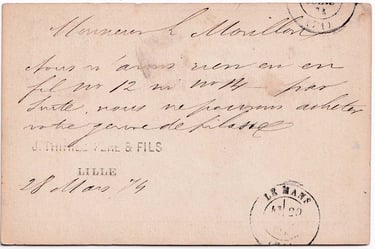 Monsieur L Morillon
Nous n'avons rien eu en
fil no 12 ni no 14 par
suite, nous ne pouvons acheter
votre genre de filasse
PERE & FILS
LILLE
28 Mars 74
LE MANS